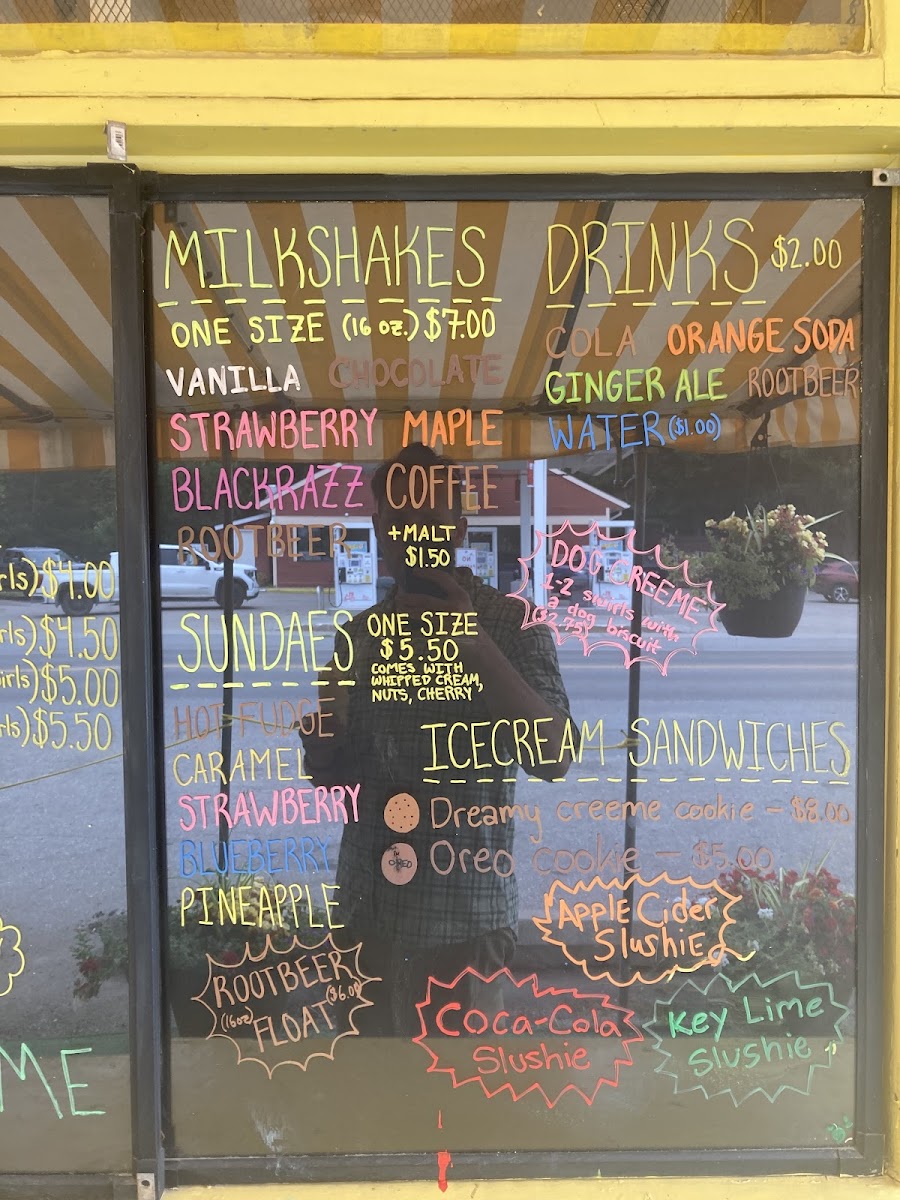 MILKSHAKES
ONE SIZE (16 oz.) $7.00
VANILLA CHOCOLATE
STRAWBERRY MAPLE
BLACKRAZZ COFFEE
ROOTBEER +MALT
$1.50
DRINKS $2.00
COLA ORANGE SODA
GINGER ALE ROOTBEER
WATER ($1.00)
DOG CREEME
1-2 swirls with
a dog biscuit
($2.75)
SUNDAES ONE SIZE
$5.50
COMES WITH
WHIPPED CREAM,
NUTS, CHERRY
HOT FUDGE
CARAMEL
STRAWBERRY
BLUEBERRY
PINEAPPLE
ROOTBEER
(16oz) FLOAT ($6.00)
ICECREAM SANDWICHES
Dreamy creeme cookie -
OREO Oreo cookie - $5.00
Apple Cider
Slushie
Coca-Cola
Slushie
Key Lime
Slushie
rls) $4.00
rls) $4.50
irls) $5.00
rls) $5.50
ME